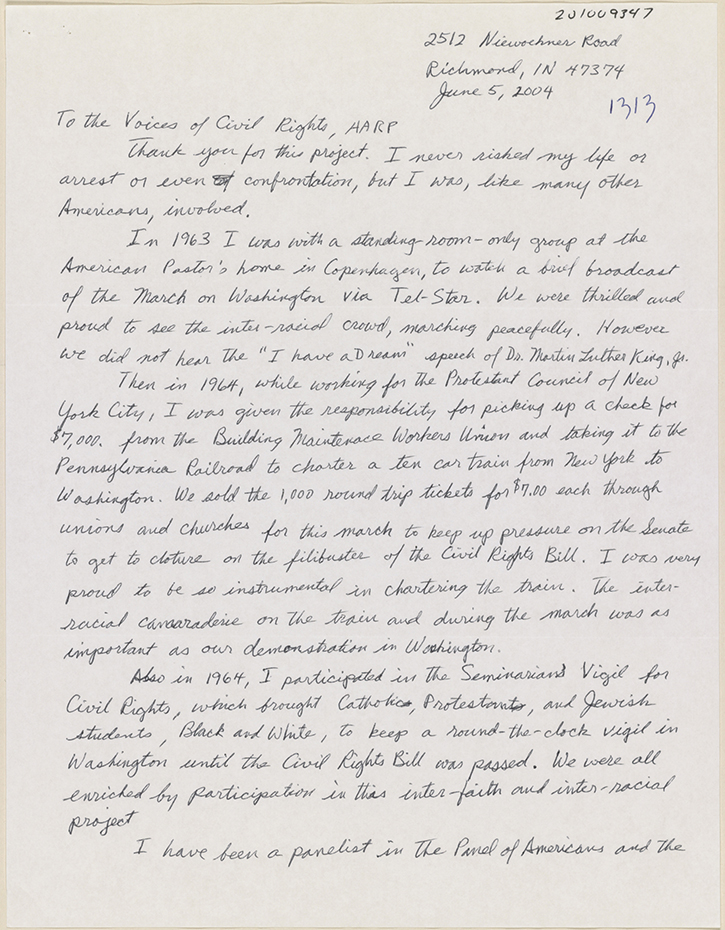 201009347
2512 Niewoehner Road
Richmond, IN 47374
June 5, 2004
1313
To the Voices of Civil Rights, AARP
Thank you for this project. I never risked my life or
arrest or even confrontation, but I was, like many other
Americans, involved.
In 1963 I was with a standing-room-only group at the
American Pastor's home in Copenhagen, to watch a brief broadcast
of the March on Washington via Tel-Star. We were thrilled and
proud to see the inter-racial crowd, marching peacefully. However
we did not hear the "I have a Dream" speech of Dr. Martin Luther King, Jr.
Then in 1964, while working for the Protestant Council of New
York City, I was given the responsibility for picking up a check for
$7,000. from the Building Maintenace Workers Union and taking it to the
Pennsylvania Railroad to charter a ten car train from New York to
Washington. We sold the 1,000 round trip tickets for $7.00 each through
unions and churches for this march to keep up pressure on the Senate
to get to cloture on the filibuster of the Civil Rights Bill. I was very
proud to be so instrumental in chartering the train. The inter-
racial camaraderie on the train and during the march was as
important as our demonstration in Washington.
Also in 1964, I participated in the Seminarians Vigil for
Civil Rights, which brought Catholics, Protestants, and Jewish
students, Black and White, to keep a round-the-clock vigil in
Washington until the Civil Rights Bill was passed. We were all
enriched by participation in this inter-faith and inter-racial
project
I have been a panelist in the Panel of Americans and the